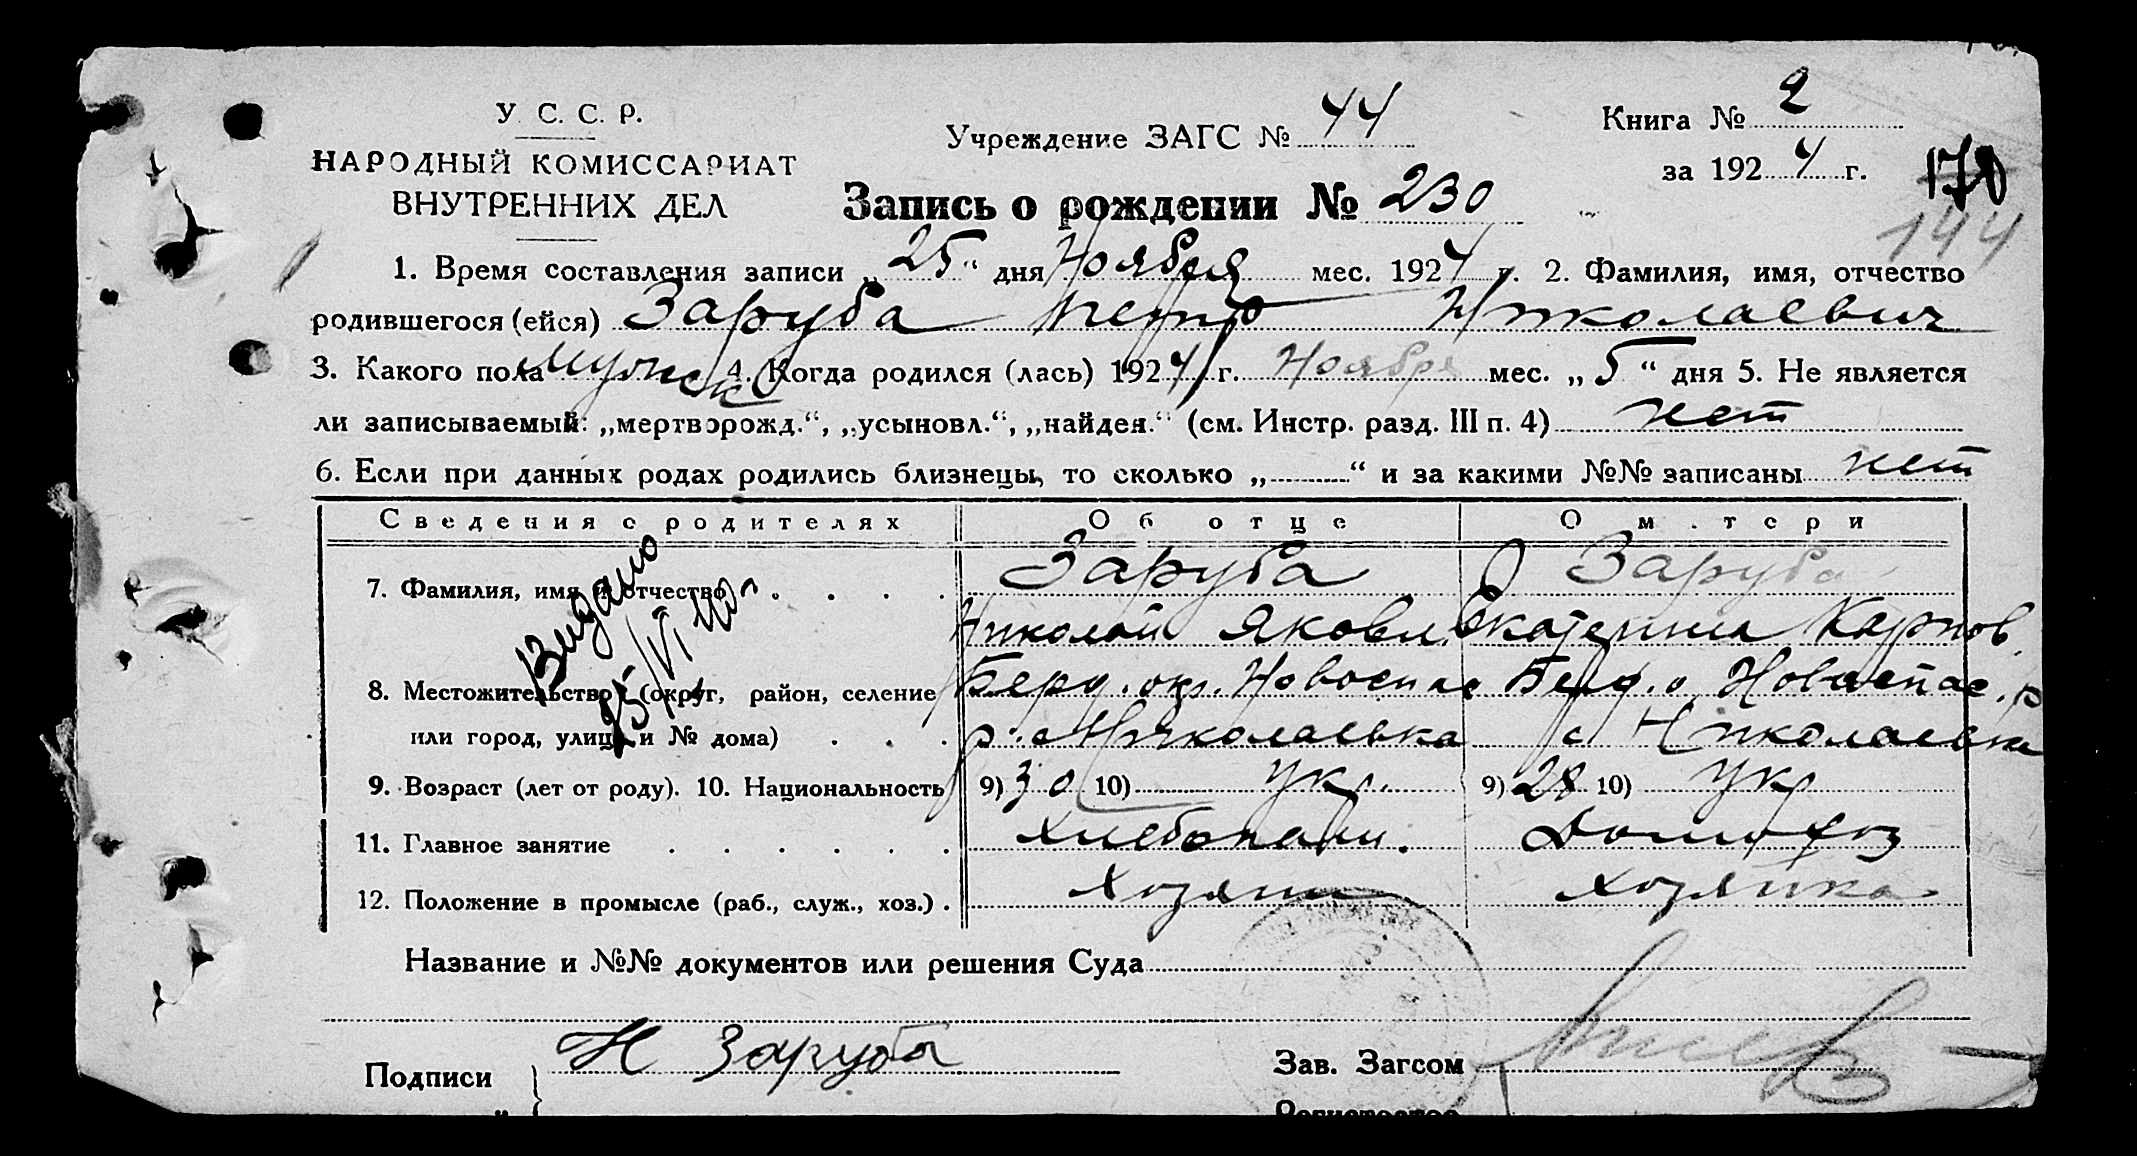 У. С. С. Р.
НАРОДНЫЙ КОМИССАРИАТ
ВНУТРЕННИХ ДЕЛ
Учреждение ЗАГС № 44
Книга № 2
за 1924 г.
170
144
Запись о рождении № 230
1. Время составления записи „25“ дня Ноября мес. 1924 г. 2. Фамилия, имя, отчество
родившегося (ейся) Заруба Петр Николаевич
3. Какого пола Мужск 4. Когда родился (лась) 1924 г. Ноября мес. „5“ дня 5. Не является
ли записываемый: „мертворожд.“, „усыновл.“, „найден.“ (см. Инстр. разд. III п. 4) нет
6. Если при данных родах родились близнецы, то сколько „ “ и за какими №№ записаны нет
Сведения о родителях Об отце О матери
7. Фамилия, имя и отчество . . . . Заруба Заруба
Николай Яковл. Екатерина Карпов.
8. Местожительство (округ, район, селение Берд. окр. Новоспас Берд. о. Новоспас. р
или город, улица и № дома) . . . р. с Николаевка с Николаевка
9. Возраст (лет от роду). 10. Национальность 9) 30 10) укр. 9) 28 10) укр
11. Главное занятие . . . . . . Хлебопаш. Домохоз
12. Положение в промысле (раб., служ., хоз.) . Хозяин Хозяйка
Видано
25/VI 40 г
Название и №№ документов или решения Суда
Подписи Н Заруба
Зав. Загсом